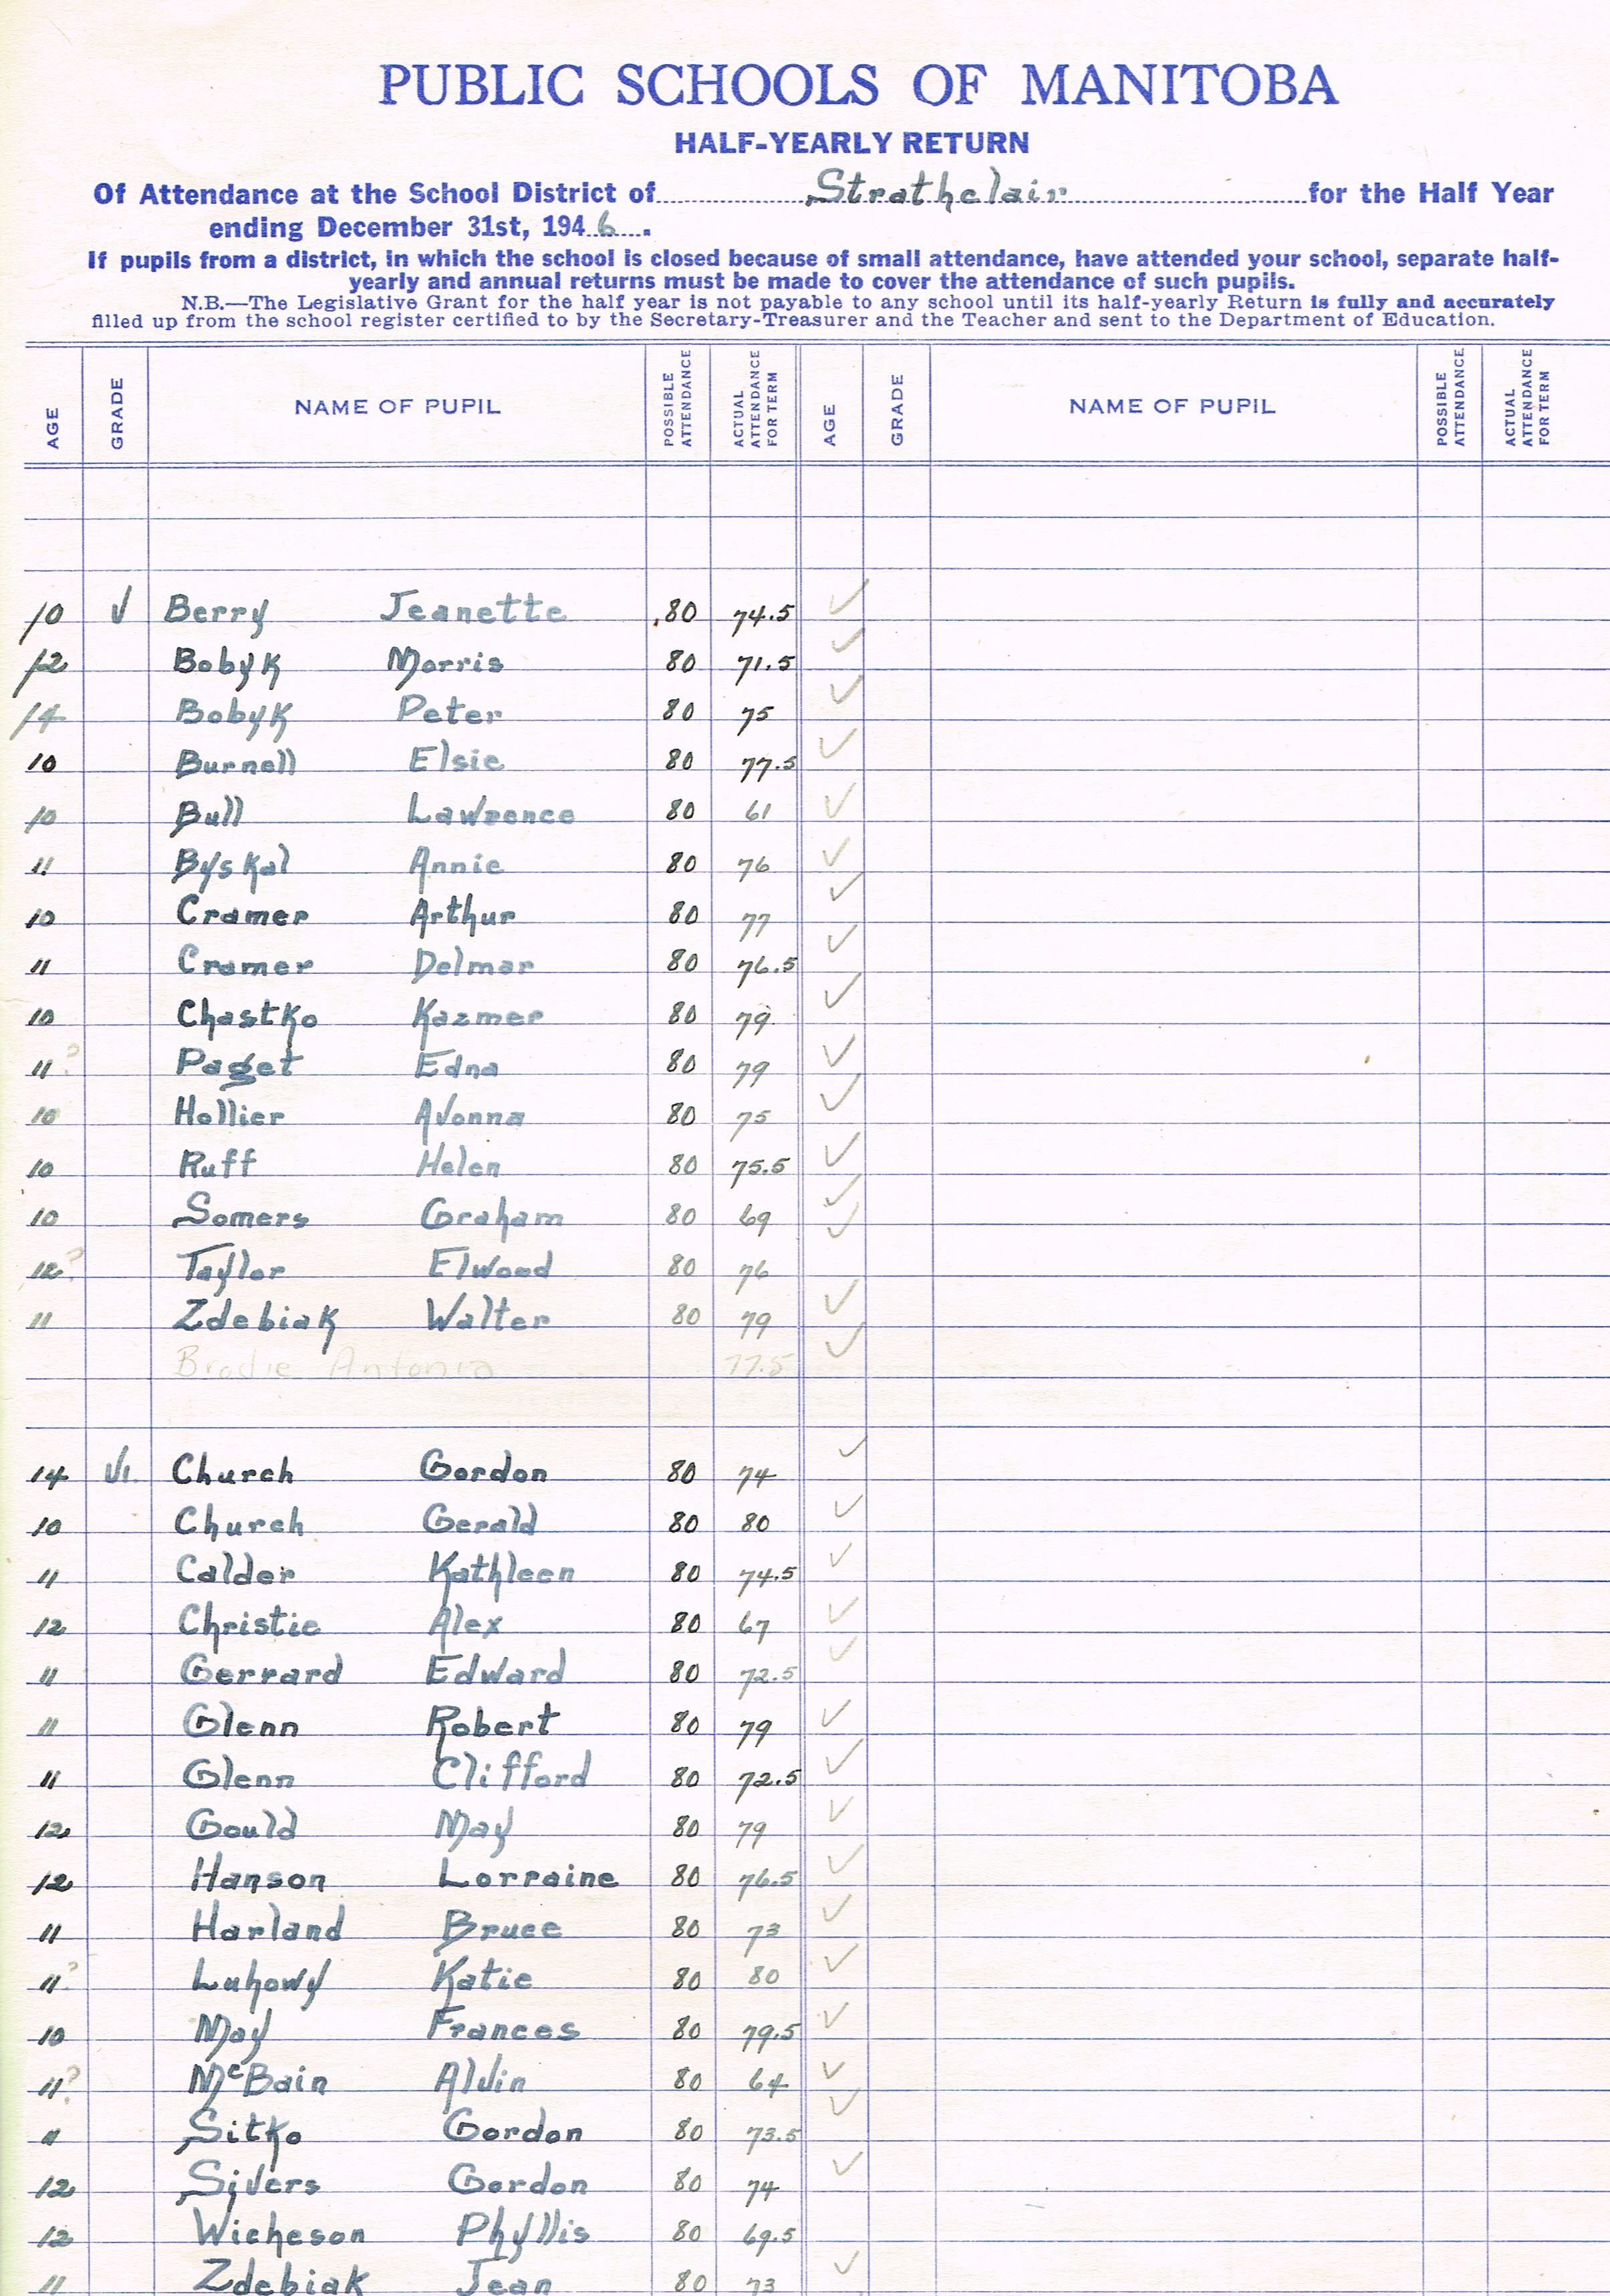 PUBLIC SCHOOLS OF MANITOBA
HALF-YEARLY RETURN
Of Attendance at the School District of Strathclair for the Half Year
ending December 31st, 1946.
If pupils from a district, in which the school is closed because of small attendance, have attended your school, separate half-
yearly and annual returns must be made to cover the attendance of such pupils.
N.B.—The Legislative Grant for the half year is not payable to any school until its half-yearly Return is fully and accurately
filled up from the school register certified to by the Secretary-Treasurer and the Teacher and sent to the Department of Education.
AGE GRADE NAME OF PUPIL POSSIBLE ATTENDANCE ACTUAL ATTENDANCE FOR TERM AGE GRADE NAME OF PUPIL POSSIBLE ATTENDANCE ACTUAL ATTENDANCE FOR TERM
10 V Berry Jeanette 80 74.5 ✓
12 Bobyk Morris 80 71.5 ✓
14 Bobyk Peter 80 75 ✓
10 Burnell Elsie 80 77.5 ✓
10 Bull Lawrence 80 61 ✓
11 Byskal Annie 80 76 ✓
10 Cramer Arthur 80 77 ✓
11 Cramer Delmar 80 76.5 ✓
10 Chastko Kazmer 80 79 ✓
11? Paget Edna 80 79 ✓
10 Hollier Avonna 80 75 ✓
10 Ruff Helen 80 75.5 ✓
10 Somers Graham 80 69 ✓
12? Taylor Elwood 80 76 ✓
11 Zdebiak Walter 80 79 ✓
Brodie Antonia 77.5 ✓
14 VI. Church Gordon 80 74 ✓
10 Church Gerald 80 80 ✓
11 Calder Kathleen 80 74.5 ✓
12 Christie Alex 80 67 ✓
11 Gerrard Edward 80 72.5 ✓
11 Glenn Robert 80 79 ✓
11 Glenn Clifford 80 72.5 ✓
12 Gould May 80 79 ✓
12 Hanson Lorraine 80 76.5 ✓
11 Harland Bruce 80 73 ✓
11? Luhowy Katie 80 80 ✓
10 May Frances 80 79.5 ✓
11? McBain Alvin 80 64 ✓
11 Sitko Gordon 80 73.5 ✓
12 Sivers Gordon 80 74 ✓
12 Wicheson Phyllis 80 69.5
11 Zdebiak Jean 80 73 ✓